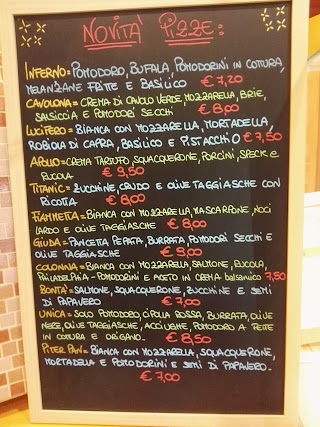 NOVITÀ PIZZE:
INFERNO= POMODORO, BUFALA, POMODORINI IN COTTURA,
MELANZANE FRITTE E BASILICO € 7,20
CAVOLONA= CREMA DI CAVOLO VERDE, MOZZARELLA, BRIE,
SALSICCIA E POMODORI SECCHI € 8,00
LUCIFERO= BIANCA CON MOZZARELLA, MORTADELLA,
ROBIOLA DI CAPRA, BASILICO E PISTACCHIO € 7,50
APOLLO= CREMA TARTUFO, SQUACQUERONE, PORCINI, SPECK E
RUCOLA € 9,50
TITANIC= ZUCCHINE, CRUDO E OLIVE TAGGIASCHE CON
RICOTTA € 8,00
FIAMMETTA= BIANCA CON MOZZARELLA, MASCARPONE, NOCI
LARDO E OLIVE TAGGIASCHE € 8,00
GIUDA= PANCETTA PEPATA, BURRATA, POMODORI SECCHI E
OLIVE TAGGIASCHE € 9,00
COLONNA= BIANCA CON MOZZARELLA, SALMONE, RUCOLA,
PHILADELPHIA - POMODORINI E ACETO IN CREMA balsamico 7,50
BONTÀ= SALMONE, SQUACQUERONE, ZUCCHINE E SEMI
DI PAPAVERO € 7,00
UNICA= SOLO POMODORO, CIPOLLA ROSSA, BURRATA, OLIVE
NERE, OLIVE TAGGIASCHE, ACCIUGHE, POMODORO A FETTE
IN COTTURA E ORIGANO. € 8,50
PITER PAN= BIANCA CON MOZZARELLA, SQUACQUERONE,
MORTADELLA E POMODORINI E SEMI DI PAPAVERO.
€ 7,00